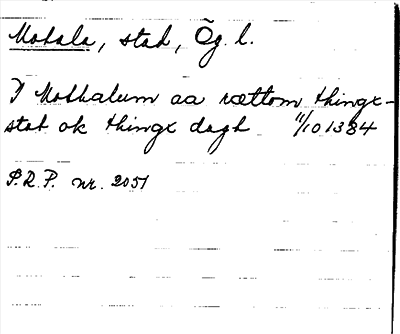 Motala, stad, Ög. l.
J Mothalum aa rættom thingx-
stat ok thingx dagh 11/10 1384
S.R.P. nr. 2051